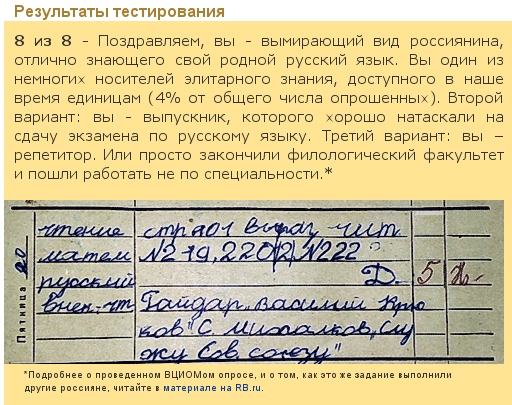 Результаты тестирования
8 из 8 - Поздравляем, вы - вымирающий вид россиянина,
отлично знающего свой родной русский язык. Вы один из
немногих носителей элитарного знания, доступного в наше
время единицам (4% от общего числа опрошенных). Второй
вариант: вы - выпускник, которого хорошо натаскали на
сдачу экзамена по русскому языку. Третий вариант: вы –
репетитор. Или просто закончили филологический факультет
и пошли работать не по специальности.*
Пятница 20
чтение стр 201 Выраз чит.
матем № 219, 220(2), № 222
русский Д. 5
внек. чт Гайдар „Василий Крю
ков" С. Михалков „Слу
жу Сов. союзу"
*Подробнее о проведенном ВЦИОМом опросе, и о том, как это же задание выполнили
другие россияне, читайте в материале на RB.ru.